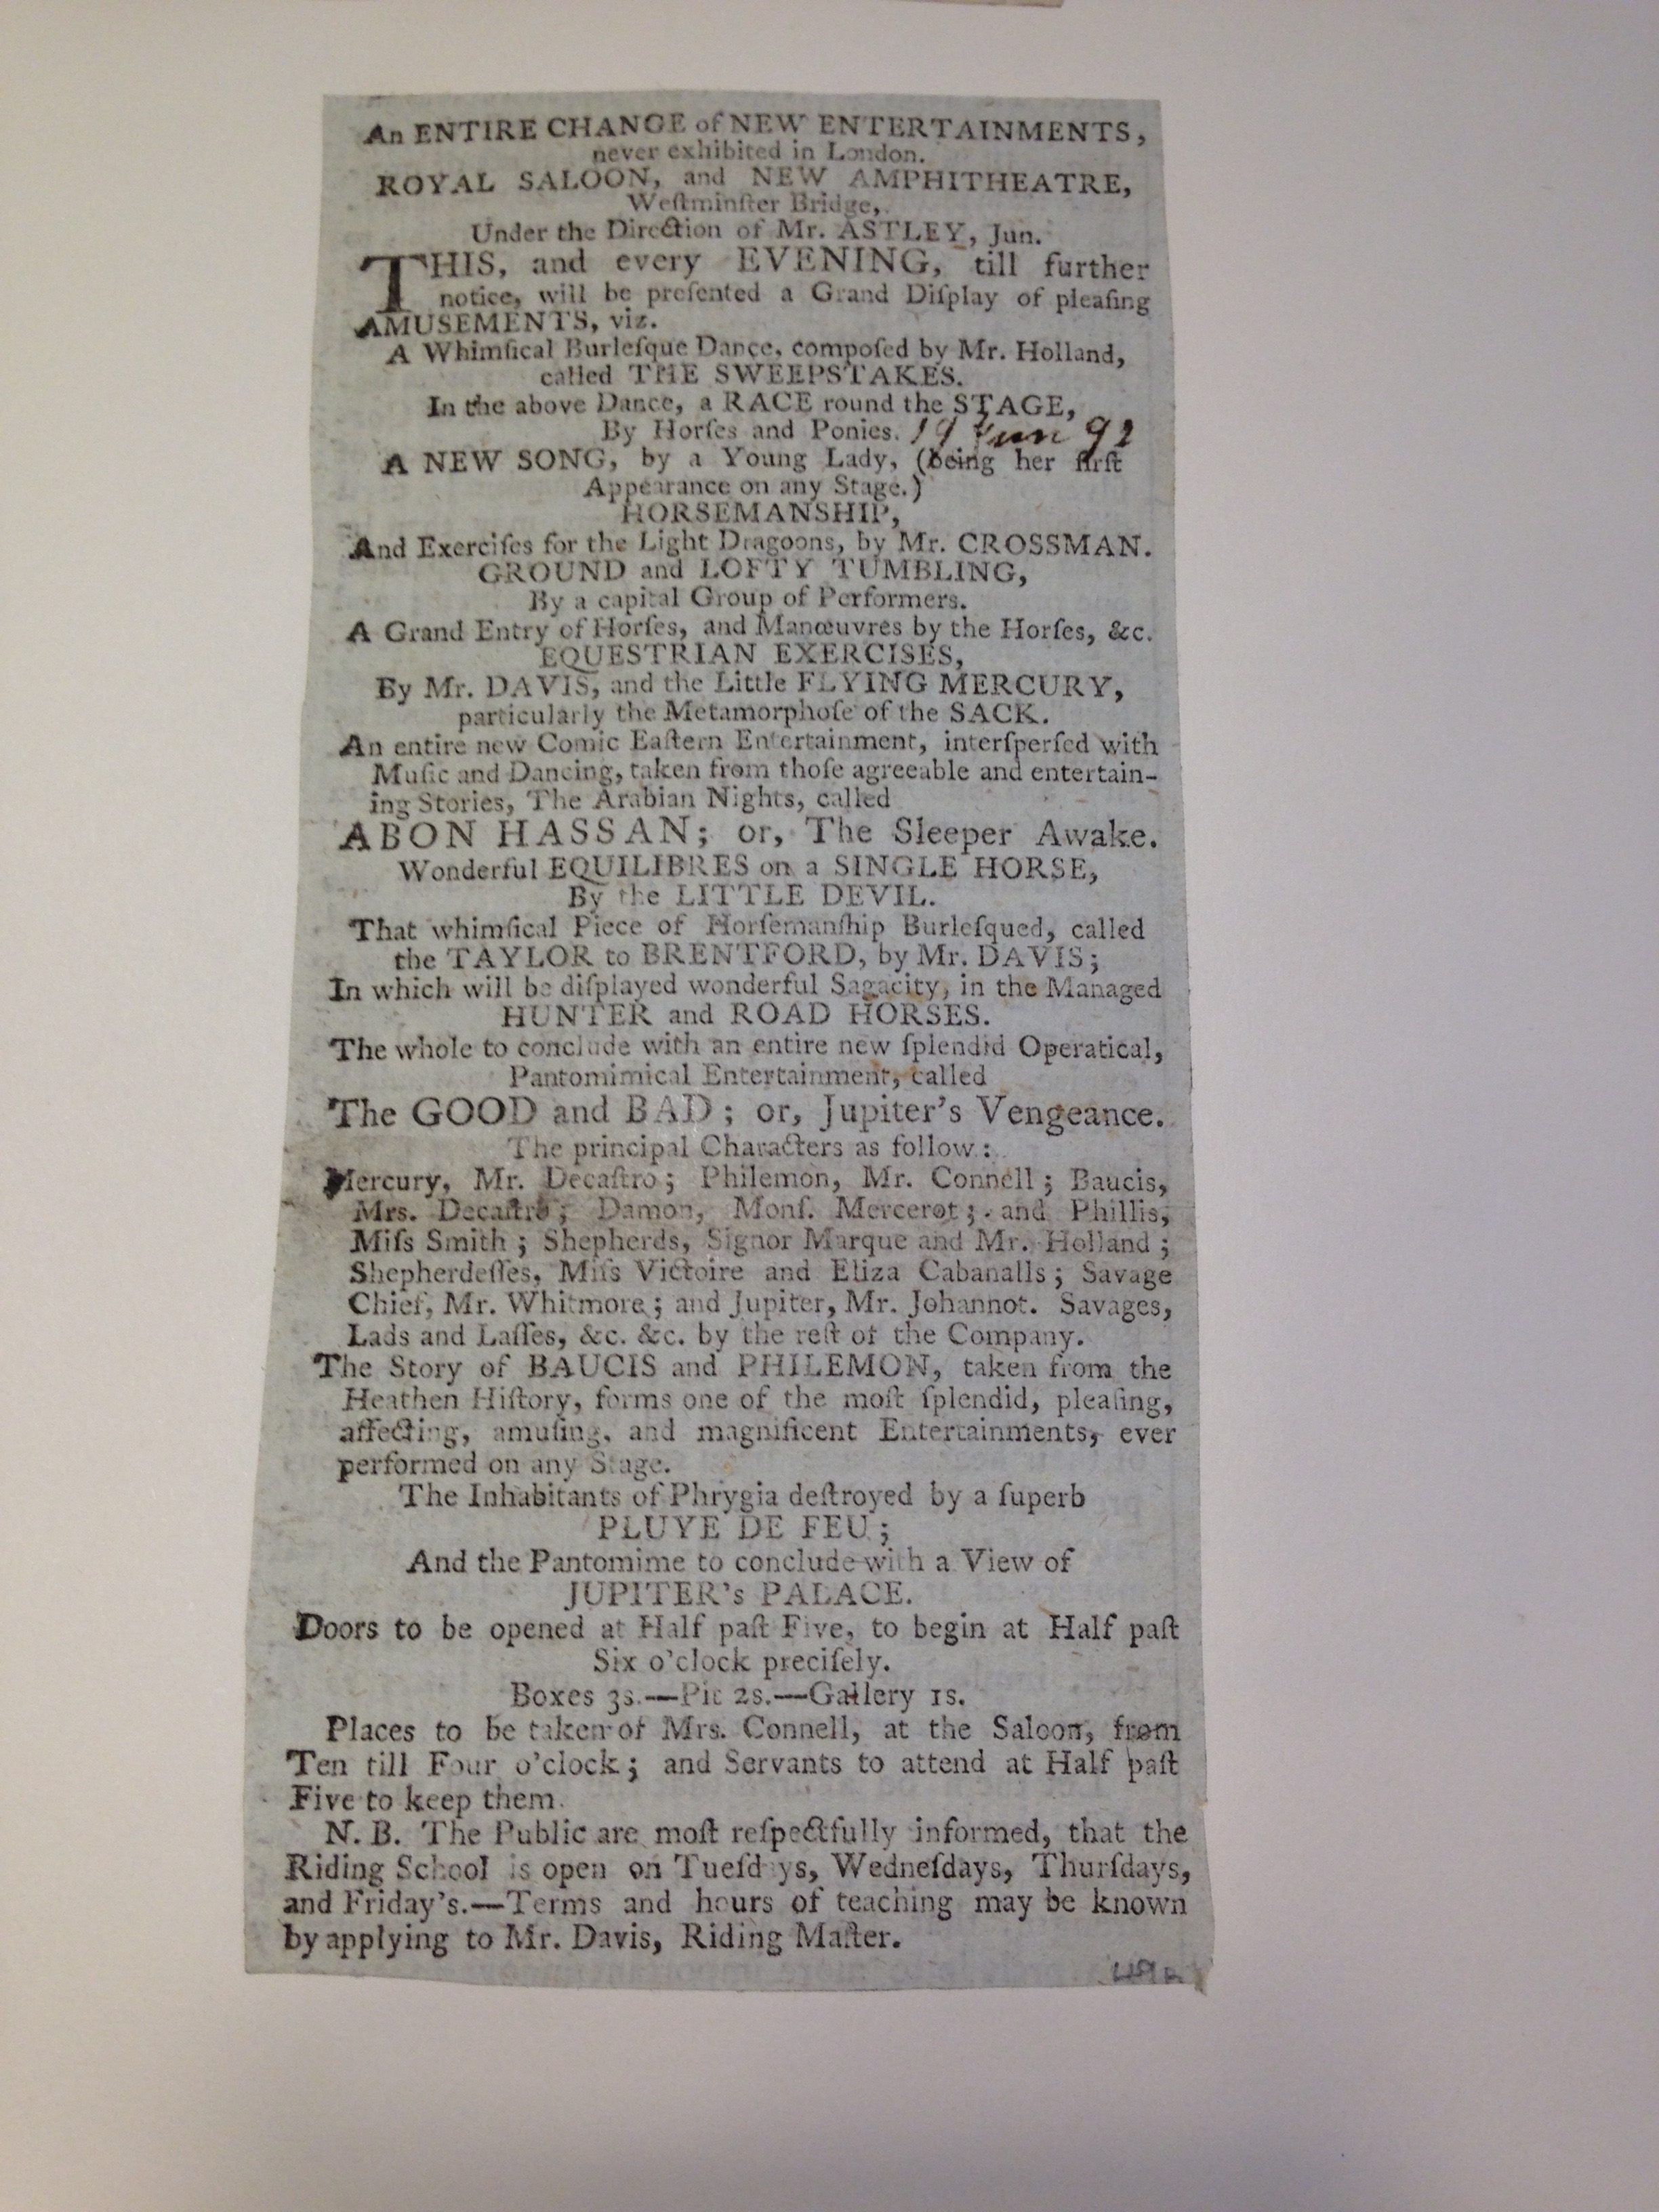 An ENTIRE CHANGE of NEW ENTERTAINMENTS,
never exhibited in London.
ROYAL SALOON, and NEW AMPHITHEATRE,
Weſtminſter Bridge,
Under the Direction of Mr. ASTLEY, Jun.
THIS, and every EVENING, till further
notice, will be preſented a Grand Diſplay of pleaſing
AMUSEMENTS, viz.
A Whimſical Burleſque Dance, compoſed by Mr. Holland,
called THE SWEEPSTAKES.
In the above Dance, a RACE round the STAGE,
By Horſes and Ponies. 19 Jun 92
A NEW SONG, by a Young Lady, (being her firſt
Appearance on any Stage.)
HORSEMANSHIP,
And Exerciſes for the Light Dragoons, by Mr. CROSSMAN.
GROUND and LOFTY TUMBLING,
By a capital Group of Performers.
A Grand Entry of Horſes, and Manœuvres by the Horſes, &c.
EQUESTRIAN EXERCISES,
By Mr. DAVIS, and the Little FLYING MERCURY,
particularly the Metamorphoſe of the SACK.
An entire new Comic Eaſtern Entertainment, interſperſed with
Muſic and Dancing, taken from thoſe agreeable and entertain-
ing Stories, The Arabian Nights, called
ABON HASSAN; or, The Sleeper Awake.
Wonderful EQUILIBRES on a SINGLE HORSE,
By the LITTLE DEVIL.
That whimſical Piece of Horſemanſhip Burleſqued, called
the TAYLOR to BRENTFORD, by Mr. DAVIS;
In which will be diſplayed wonderful Sagacity, in the Managed
HUNTER and ROAD HORSES.
The whole to conclude with an entire new ſplendid Operatical,
Pantomimical Entertainment, called
The GOOD and BAD; or, Jupiter's Vengeance.
The principal Characters as follow:
Mercury, Mr. Decaſtro; Philemon, Mr. Connell; Baucis,
Mrs. Decaſtro; Damon, Monſ. Mercerot; and Phillis,
Miſs Smith; Shepherds, Signor Marque and Mr. Holland;
Shepherdeſſes, Miſs Victoire and Eliza Cabanalls; Savage
Chief, Mr. Whitmore; and Jupiter, Mr. Johannot. Savages,
Lads and Laſſes, &c. &c. by the reſt of the Company.
The Story of BAUCIS and PHILEMON, taken from the
Heathen Hiſtory, forms one of the moſt ſplendid, pleaſing,
affecting, amuſing, and magnificent Entertainments, ever
performed on any Stage.
The Inhabitants of Phrygia deſtroyed by a ſuperb
PLUYE DE FEU;
And the Pantomime to conclude with a View of
JUPITER's PALACE.
Doors to be opened at Half paſt Five, to begin at Half paſt
Six o'clock preciſely.
Boxes 3s.—Pit 2s.—Gallery 1s.
Places to be taken of Mrs. Connell, at the Saloon, from
Ten till Four o'clock; and Servants to attend at Half paſt
Five to keep them.
N. B. The Public are moſt reſpectfully informed, that the
Riding School is open on Tueſdays, Wedneſdays, Thurſdays,
and Friday's.—Terms and hours of teaching may be known
by applying to Mr. Davis, Riding Maſter.